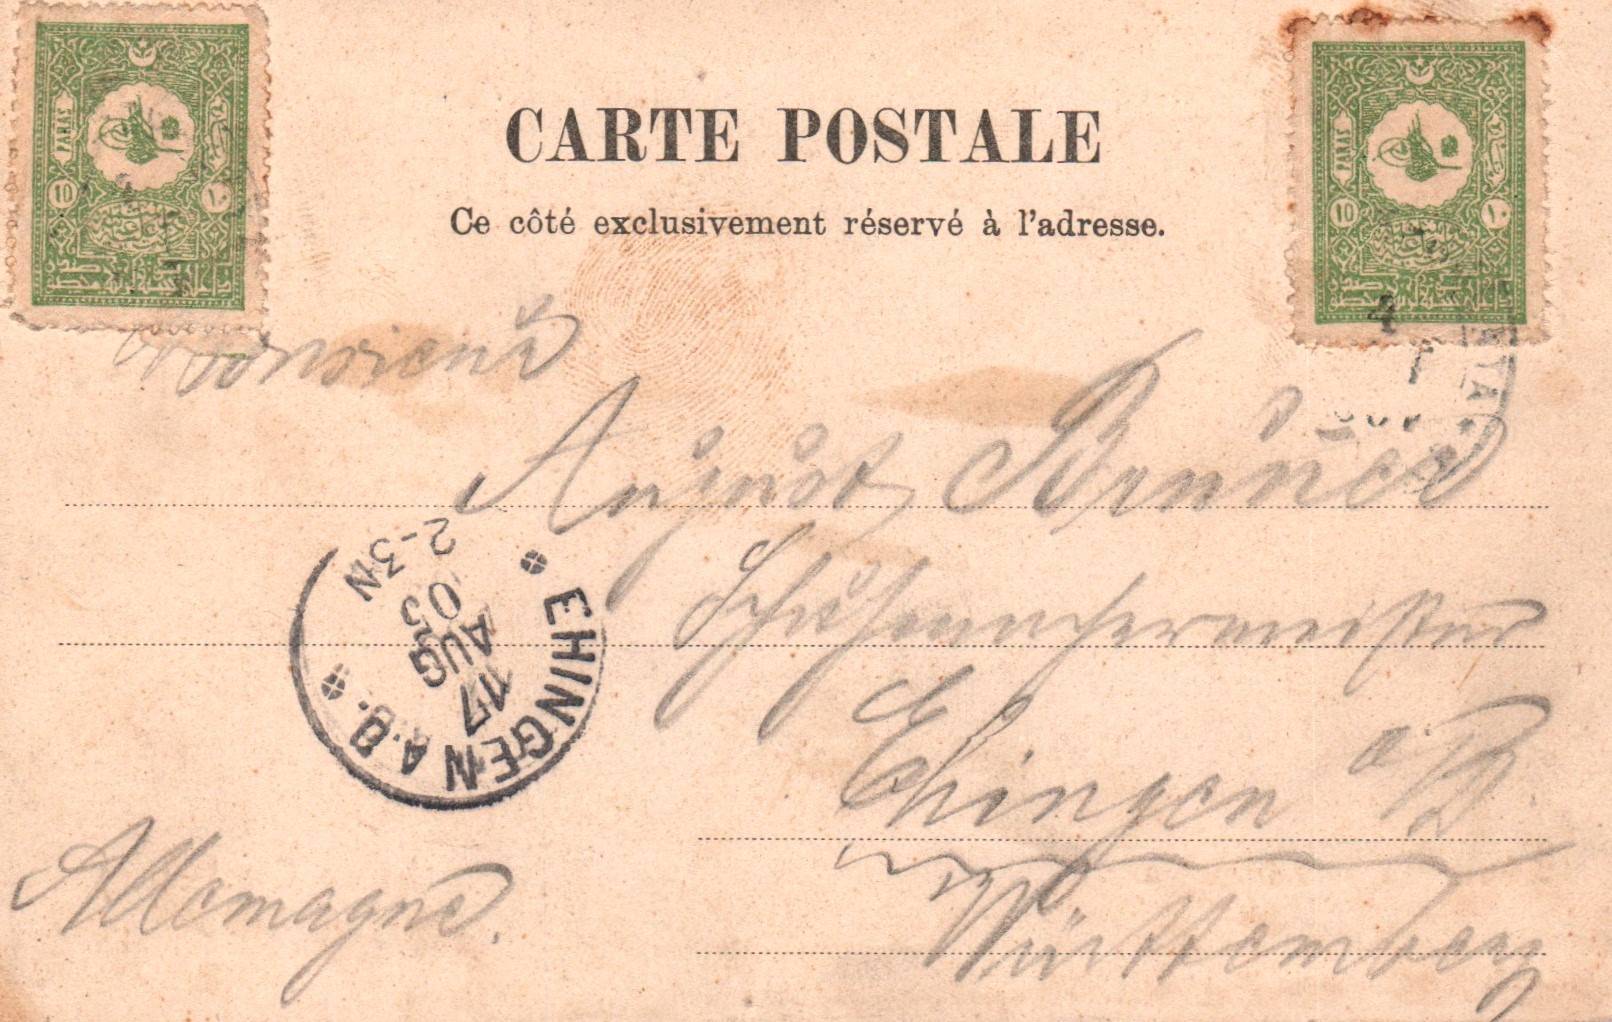 CARTE POSTALE
Ce côté exclusivement réservé à l'adresse.
PARAS
10
١٠
PARAS
10
١٠
4
Monsieur
August
Schuhmachermeister
Ehingen a/D.
Württemberg
Allemagne.
EHINGEN A.D.
17
AUG
05
2-3N